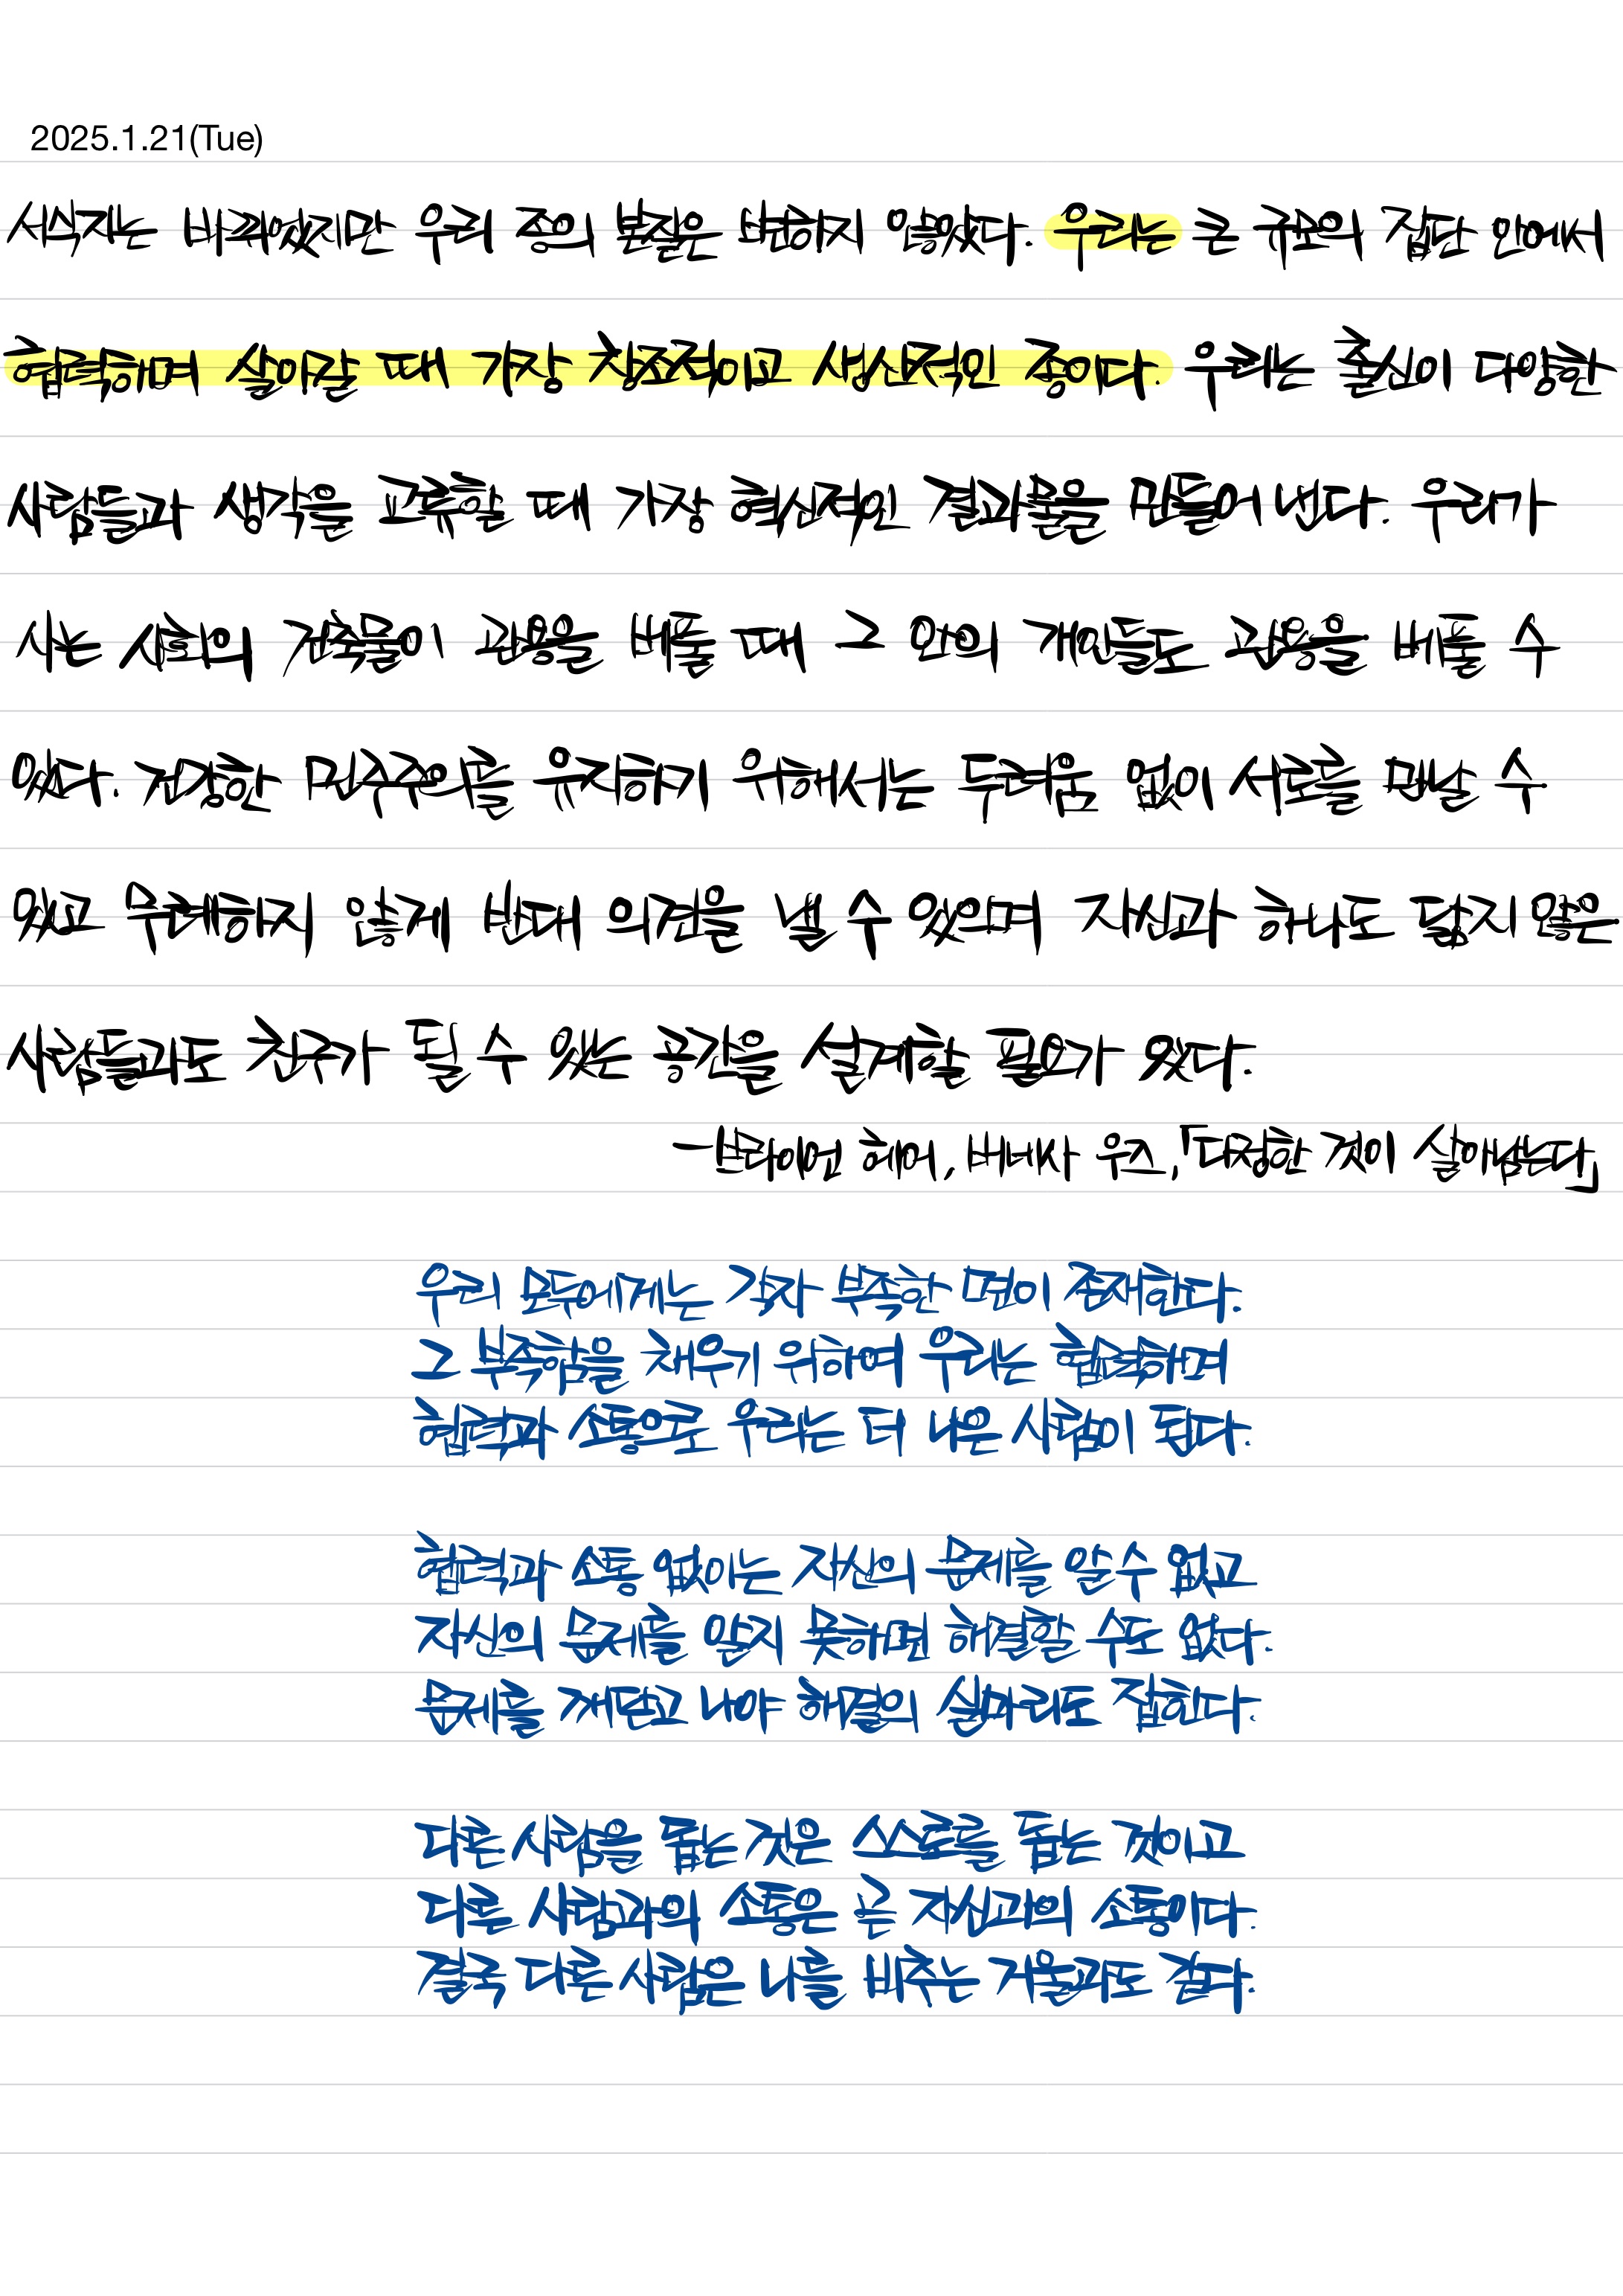 2025.1.21(Tue)
서식지는 바뀌었지만 우리 종의 본질은 변하지 않았다. 우리는 큰 규모의 집단 안에서
협력하며 살아갈 때 가장 창조적이고 생산적인 종이다. 우리는 출신이 다양한
사람들과 생각을 교류할 때 가장 혁신적인 결과물을 만들어 낸다. 우리가
사는 사회의 건축물이 관용을 베풀 때 그 안의 개인들도 관용을 베풀 수
있다. 건강한 민주주의를 유지하기 위해서는 두려움 없이 서로를 만날 수
있고 무례하지 않게 반대 의견을 낼 수 있으며 자신과 하나도 닮지 않은
사람들과도 친구가 될 수 있는 공간을 설계할 필요가 있다.
-브라이언 헤어, 버네사 우즈,「다정한 것이 살아남는다」
우리 모두에게는 각자 부족한 면이 존재한다.
그 부족함을 채우기 위하여 우리는 협력하며
협력과 소통으로 우리는 더 나은 사람이 된다.
협력과 소통 없이는 자신의 문제를 알 수 없고
자신의 문제를 알지 못하면 해결할 수도 없다.
문제를 깨닫고 나야 해결의 실마리도 잡힌다.
다른 사람을 돕는 것은 스스로를 돕는 것이고
다른 사람과의 소통은 곧 자신과의 소통이다.
결국 다른 사람은 나를 비추는 거울과도 같다.